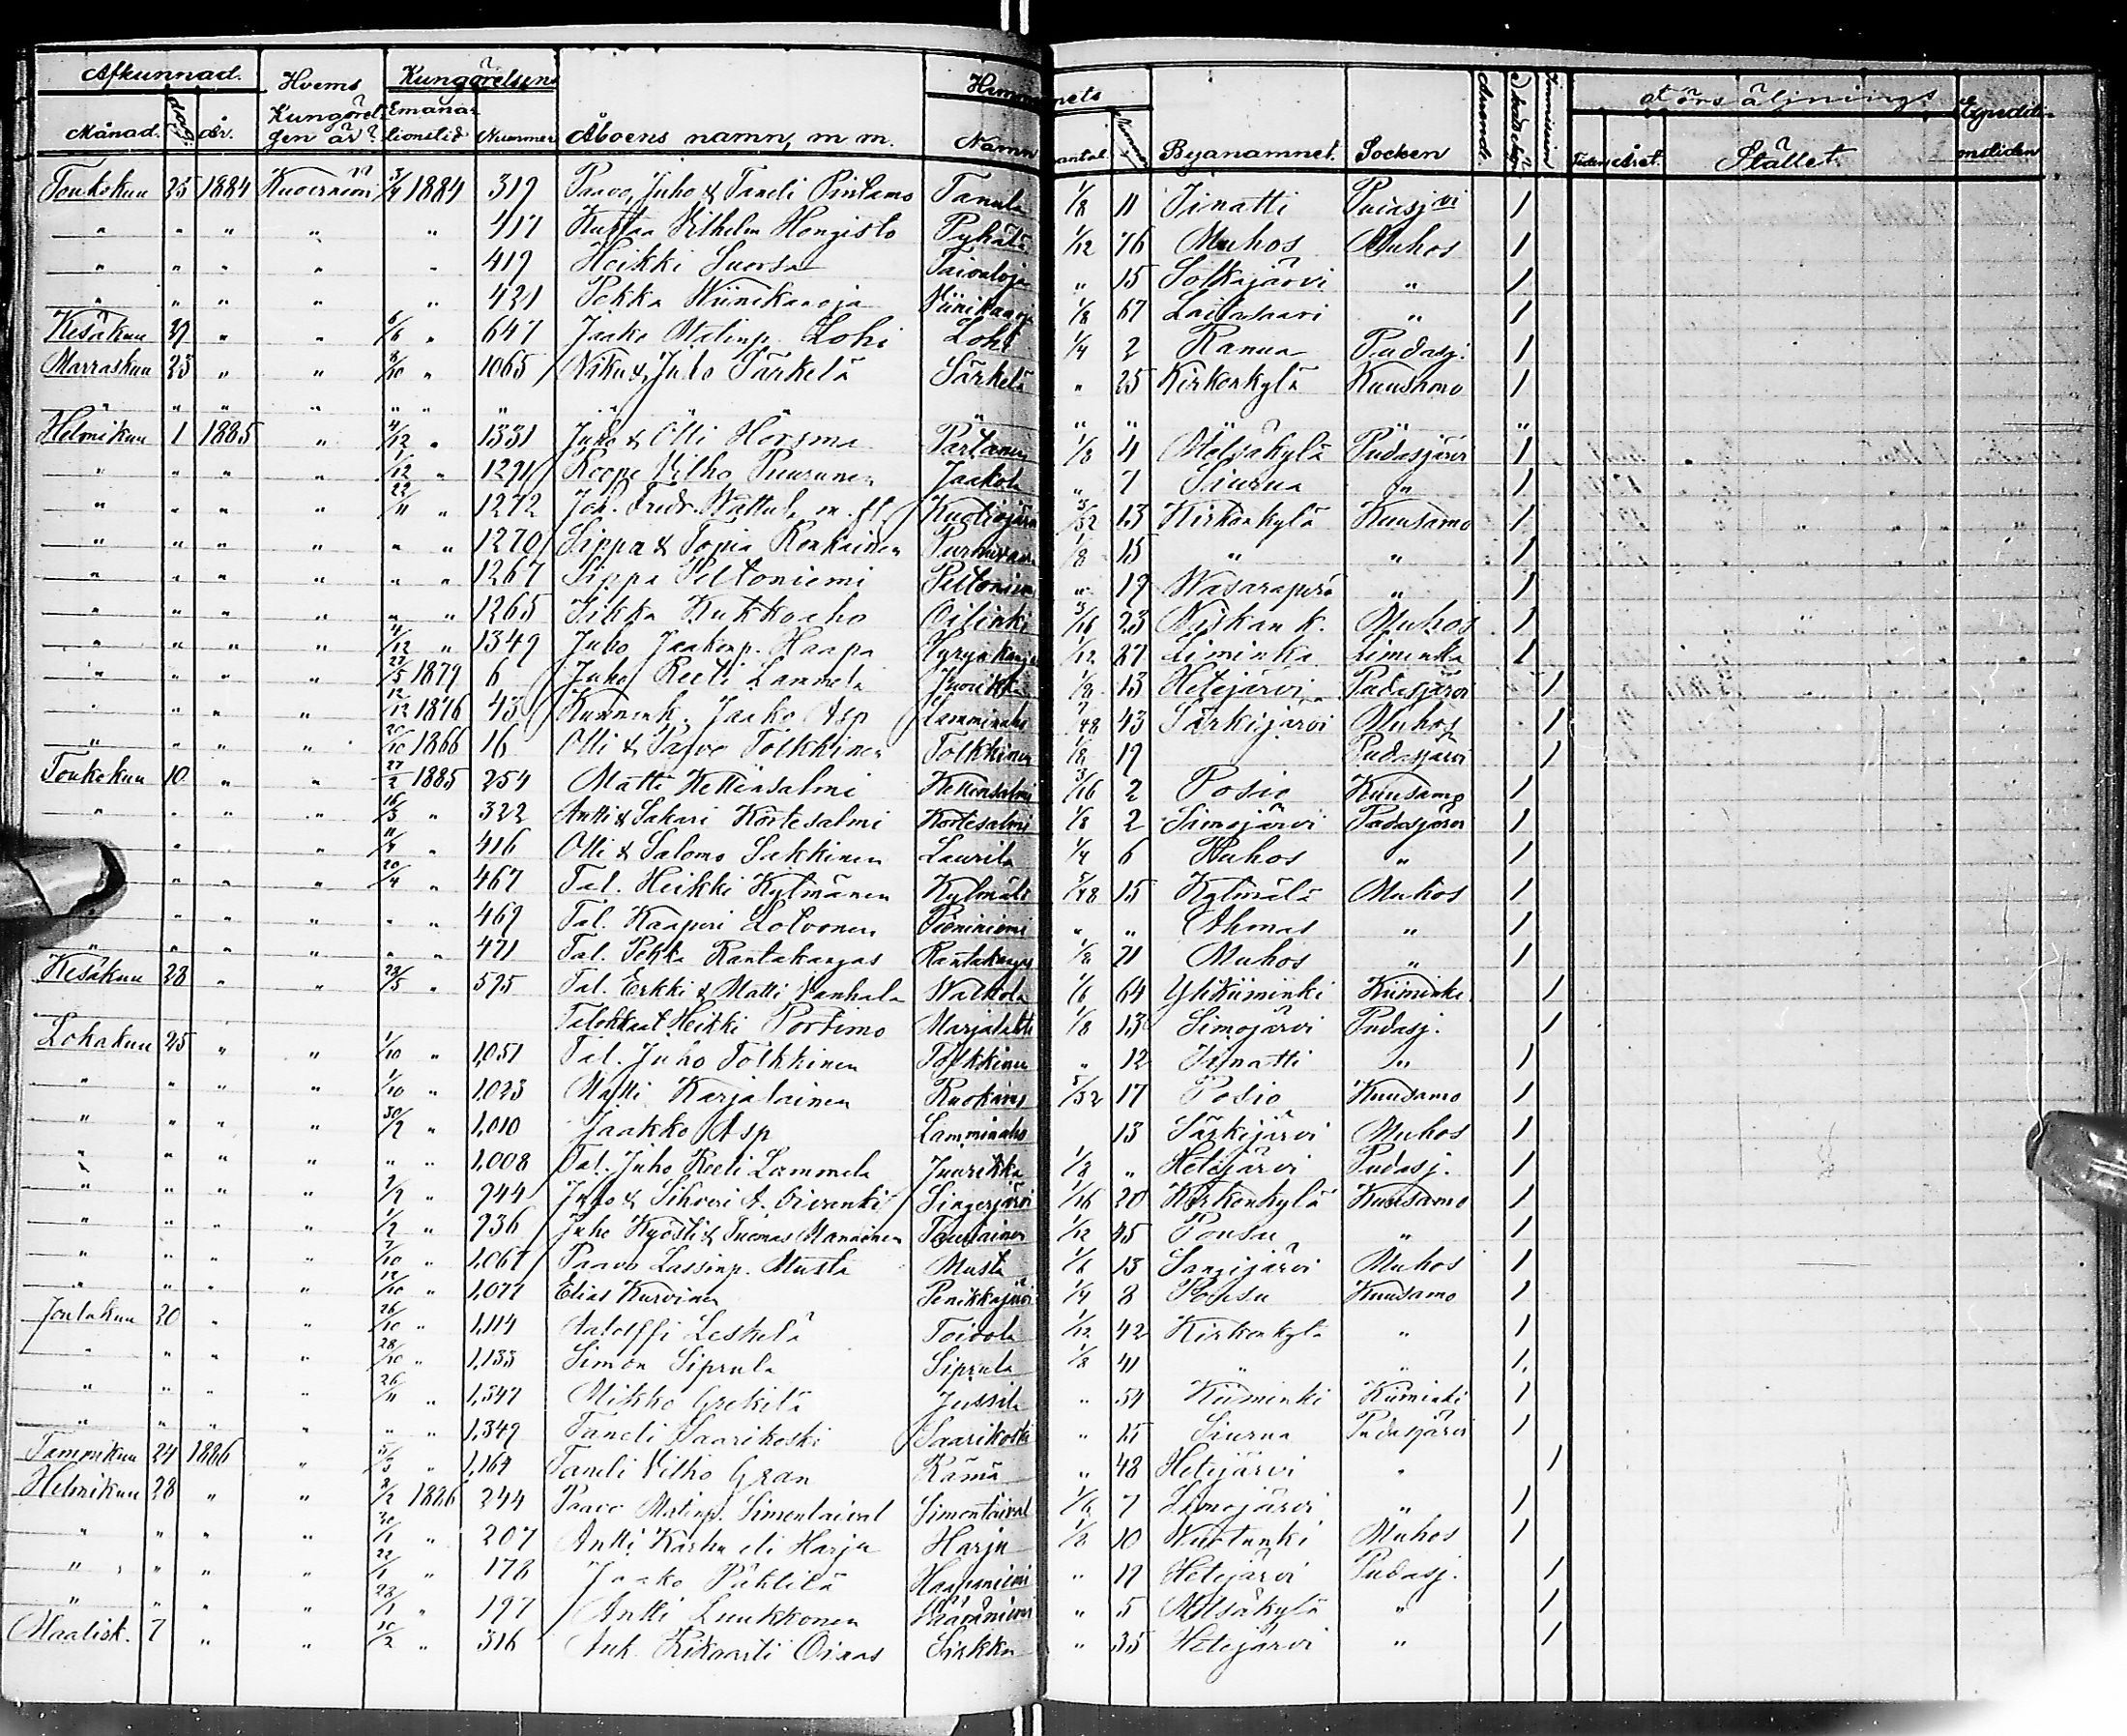 Afkunnad. Hvems Kungörelsens Hemmanets Försäljnings Expediti-
Månad. dag. år. Kungörel- Emana- Nummer Åboens namn, m m. Namn mantal Nummer Byanamnet. Socken Arrende. Immission Tiden Stället onstiden
gen är? tionstid
Toukokuu 25 1884 3/4 1884 319 Paavo, Juho & Taneli Pintamo Tanula 1/8 11 Iinatti 1
" " " " " 417 Vilhelm Hongisto Pyhälä 1/12 76 Muhos Muhos 1
" " " " " 419 Heikki Suorsa " 15 " 1
" " " " " 421 Pekka Wiinikanoja Viinikanoja 1/8 67 Laitasaari " 1
Kesäkuu 29 " " 6/6 " 647 Jaako Matinp. Lohi Lohi 1/4 2 Ranua Pudasj. 1
Marraskuu 23 " " 8/10 " 1065 Juho Särkelä Särkelä " 25 Kirkonkylä Kuusamo 1
" " " " " " " " " " " "
Helmikuu 1 1885 " 4/12 " 1331 Juho & Olli Horsma Partanen 1/8 4 Pudasjärvi 1
" " " " 1/12 " 1291 Roope Vilho Puurunen Jaakola " 7 Siurua " 1
" " " " 22/11 " 1272 Joh. Fredr. m. fl. 3/32 13 Kirkonkylä Kuusamo 1
" " " " " " 1270 Sippa & Topia Ronkainen 1/8 15 " " 1
" " " " " " 1267 Sippa Peltoniemi Peltoniemi " 19 Wasaraperä " 1
" " " " " " 1265 Kukkoaho Oilinki 3/16 23 Muhos 1
" " " " 4/12 " 1349 Juho Jaakonp. Haapa 1/12 27 Liminka Liminka 1
" " " " 27/5 1879 6 Juho Reeti Lammela Juorikka 1/8 13 Hetejärvi Pudasjärvi 1
" " " " 12/12 1876 43 Jaako Asp Lamminaho 7/48 43 Särkijärvi Muhos 1
" " " " 20/10 1866 16 Olli & Paavo Tolkkinen Tolkkinen 1/8 19 Pudasjärvi 1
Toukokuu 10 " " 27/2 1885 254 Matti Kettensalmi 3/16 2 Posio Kuusamo 1
" " " " 16/3 " 322 Antti & Sakari Kortesalmi Kortesalmi 1/8 2 Simojärvi Pudasjärvi 1
" " " 11/4 " 416 Olli & Salomo Sakkinen Laurila 1/4 6 " 1
" " " 20/4 " 467 Tal. Heikki Kylmänen Kylmälä 5/48 15 Kylmälä Muhos 1
" " " " " 469 Tal. Kaaperi Lotvonen Pieniniemi " " Ahmas " 1
" " " " " " 471 Tal. Pekka Rantakangas Rantakangas 1/8 21 Muhos " 1
Kesäkuu 28 " " 23/5 " 595 Tal. Erkki & Matti Vanhala Walkola 1/6 64 Ylikiiminki Kiiminki 1
Heikki Portimo Marjalahti 1/8 13 Simojärvi Pudasj. 1
Lokakuu 25 " " 1/10 " 1,051 Tal. Juho Tolkkinen Tolkkinen " 12 Iinatti " 1
" " " " 1/10 " 1,023 Matti Karjalainen 5/32 17 Posio Kuusamo 1
" " " " 30/9 " 1,010 Jaakko Asp Lamminaho 13 Särkijärvi Muhos 1
" " " " " " 1,008 Tal. Juho Reeti Lammela Juurikka 1/8 " Hetejärvi Pudasj. 1
" " " " 944 Juho & Sihveri A. Oivanki Singerjärvi 1/16 20 Kirkonkylä Kuusamo 1
" " " " 936 Juho Kyösti & Tuomas Manninen 1/12 45 Pousu " 1
" " " " 7/10 " 1,067 Paavo Lassinp. Musta Musta 1/6 13 Sangijärvi Muhos 1
" " " " 12/10 " 1,077 Elias Kurvinen Penikkajärvi 1/4 8 Pousu Kuusamo 1
Joulukuu 20 " " 26/10 " 1,114 Aadolffi Leskelä Toivola 1/12 42 Kirkonkylä " 1
" " " " 28/10 " 1,133 Simon Siprula Siprula 1/8 41 " " 1
" " " " 26/11 " 1,347 Mikko Grekilä Jussila " 54 Kiiminki Kiiminki 1
" " " " " " 1,349 Taneli Saarikoski Saarikoski " 25 Siurua Pudasjärvi 1
Tammikuu 24 1886 " 5/3 " 1,164 Taneli Vilho Gran Rämä " 48 Hetejärvi " 1
Helmikuu 28 " " 2/2 1886 244 Paavo Matinp. Simontaival Simontaival 1/6 7 Simojärvi " 1
" " " " 30/1 " 207 Antti Karhu eli Harju Harju 1/8 10 Muhos 1
" " " " 22/1 " 178 Jaako Pähtilä Haapaniemi " 19 Hetejärvi Pudasj. 1
" " " " 23/1 " 197 Antti Luukkonen Vääräniemi " 5 " 1
Maalisk. 7 " " 10/2 " 316 Ant. Rikaarti Oinas Sirkku " 35 Hetejärvi " 1